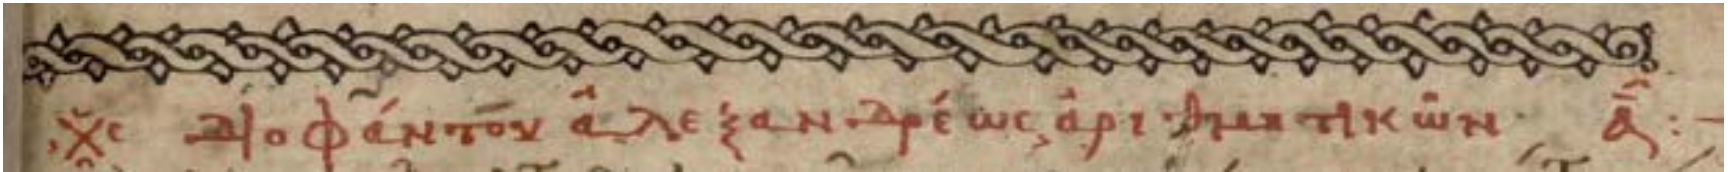 Διοφάντου ἀλεξανδρέως ἀριθμητικῶν ᾱ:-